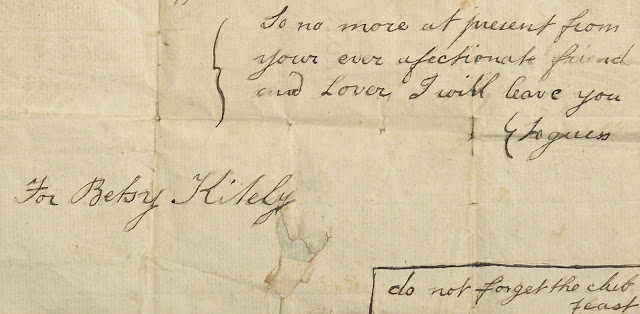 So no more at present from
your ever afectionate friend
and Lover, I will leave you
to guess
For Betsy Kitely
do not forget the club
feast